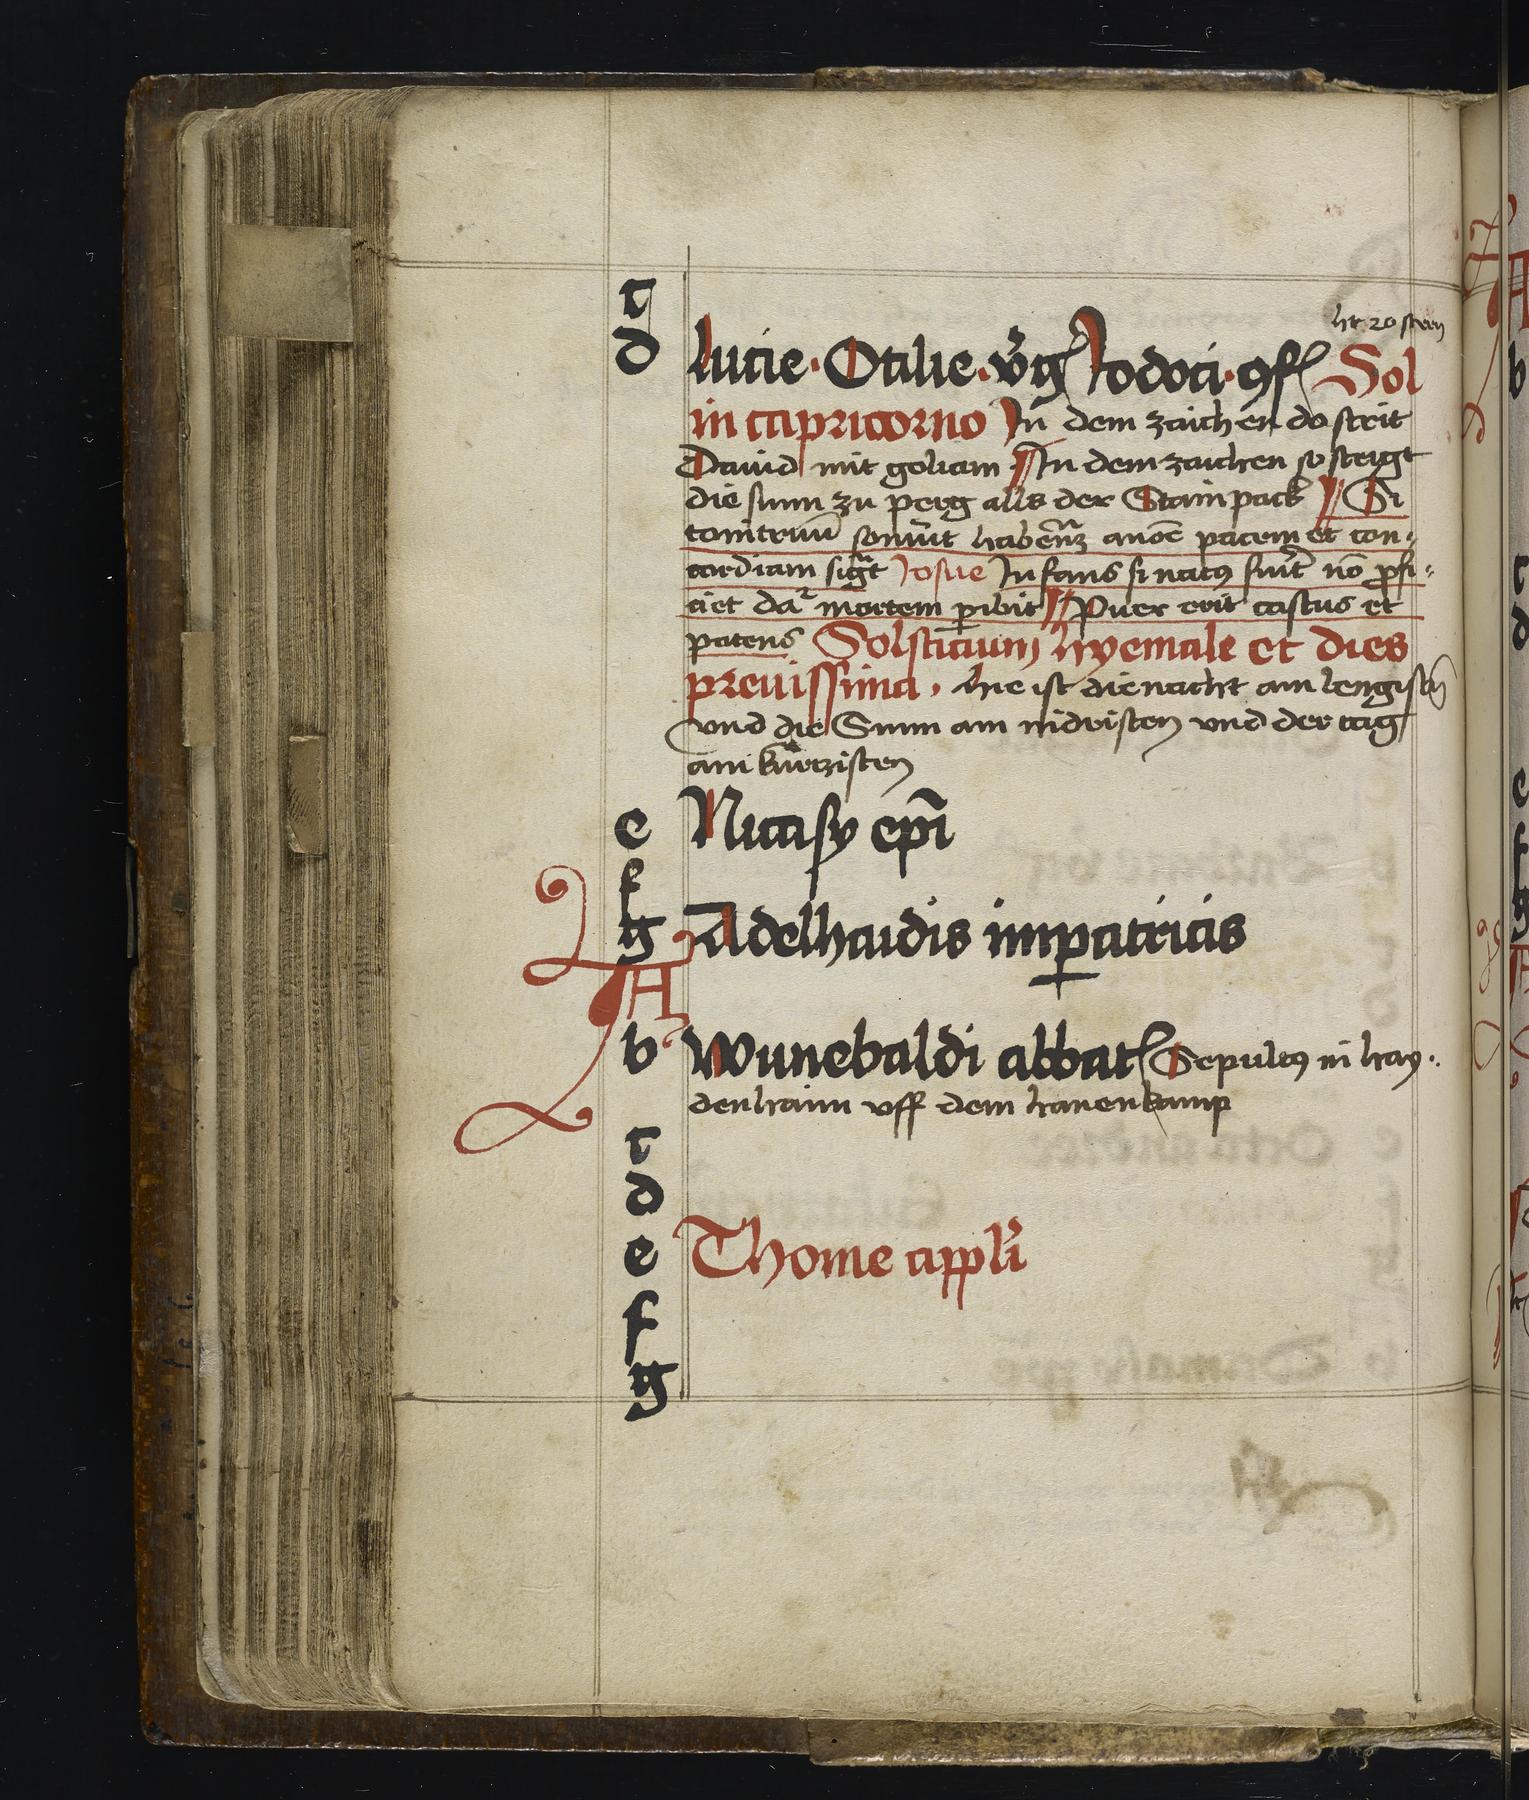 c
ht 20 stern
d Lucie · Otilie · v̄ḡ Jodoci · ꝯf Sol
in capricorno In dem zaichen do streit
Dauid mit goliam In dem zaichen so steigt
die sunn zu perg alls der Stainpack Si
tonitruū sonuīt habent anōe pacem et con-
cordiam sigt Josue Infans si natꝰ fuīt nō ꝓfi-
ciet da mortem ꝑibit Puer erit castus et
patens Solsticium hyemale et dies
preuissima · hie ist die nacht am lengistn̄
vnd die Sunn am nidristen vnd der tag
am kürtzisten
e Nicasy ep̄i
f
g Adelhaidis imꝑatricis
A
b Wunebaldi abbat Sepultꝰ in hay-
denhaim vff dem hanenkamp
c
d
e Thome appl̄i
f
g